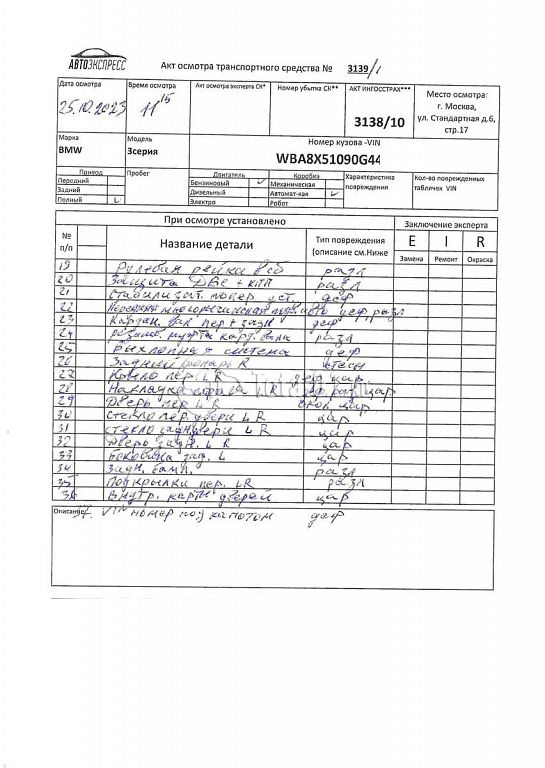 АВТОЭКСПРЕСС
Акт осмотра транспортного средства № 3139/1
Дата осмотра
25.10.2023
Время осмотра
11 15
Акт осмотра эксперта СК*
Номер убытка СК**
АКТ ИНГОССТРАХ***
3138/10
Место осмотра:
г. Москва,
ул. Стандартная д.6,
стр.17
Марка
BMW
Модель
3серия
Номер кузова -VIN
WBA8X51090G44
Привод
Передний
Задний
Полный
Пробег
Двигатель
Бензиновый
Дизельный
Электро
Коробка
Механическая
Автомат-кая
Робот
Характеристика повреждения
Кол-во поврежденных табличек VIN
При осмотре установлено
Заключение эксперта
№ п/п
Название детали
Тип повреждения (описание см.Ниже
E I R
Замена Ремонт Окраска
19 Рулевая рейка в сб разл
20 Защита ДВС + КПП разл
21 Стабилизат. попер уст. деф
22 деф разл
23 Кардан. вал пер + задн деф
24 муфта кард. вала разл
25 Выхлопная система деф
26 Задний фонарь R
27 Крыло пер. L R деф цар
28 Накладка порога L R деф разл цар
29 Дверь пер L R скол цар
30 Стекло пер. двери L R цар
31 стекло задн двери L R цар
32 Дверь задн. L R цар
33 Боковина зад. L цар
34 Задн. бамп. разл
35 Подкрылки пер. LR разл
36 Внутр. карты дверей цар
Описание
37. VIN номер под капотом деф